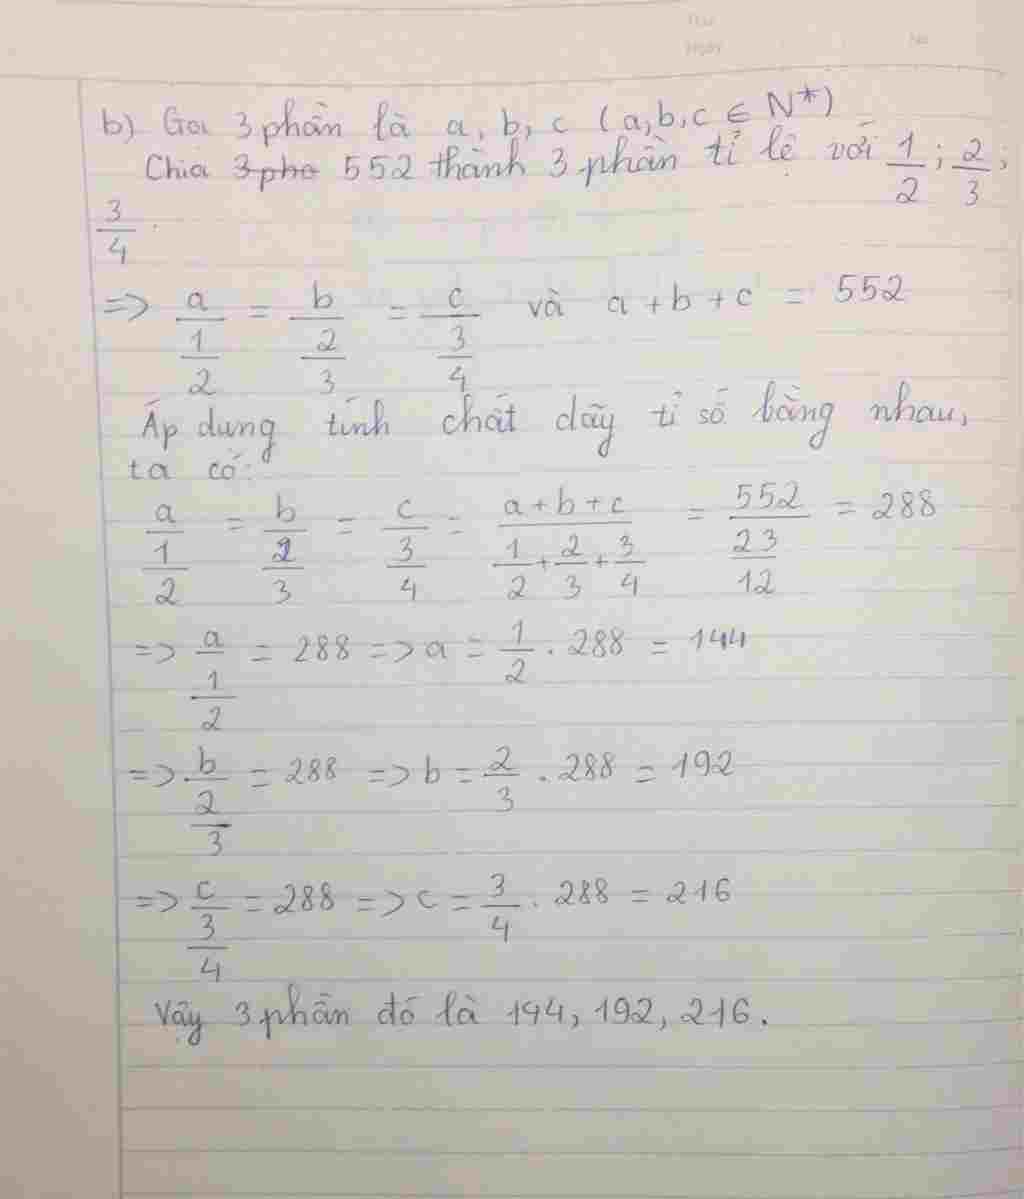 Thứ
Ngày No
b) Gọi 3 phần là a, b, c (a,b,c ∈ N*)
Chia 3 pho 552 thành 3 phần tỉ lệ với 1/2; 2/3;
3/4.
=> a/(1/2) = b/(2/3) = c/(3/4) và a + b + c = 552
Áp dụng tính chất dãy tỉ số bằng nhau,
ta có:
a/(1/2) = b/(2/3) = c/(3/4) = (a+b+c)/(1/2+2/3+3/4) = 552/(23/12) = 288
=> a/(1/2) = 288 => a = 1/2 . 288 = 144
=> b/(2/3) = 288 => b = 2/3 . 288 = 192
=> c/(3/4) = 288 => c = 3/4 . 288 = 216
Vậy 3 phần đó là 144, 192, 216.